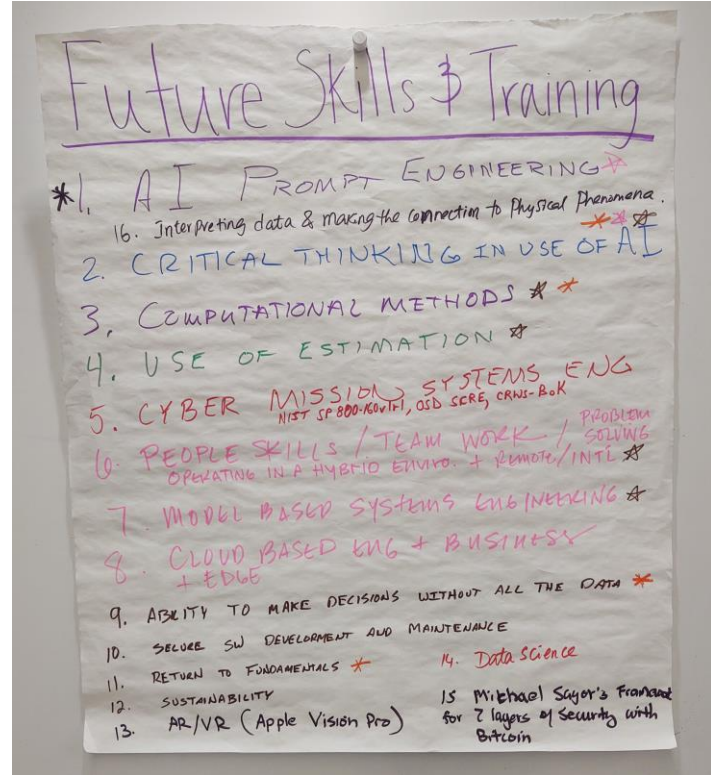 Future Skills & Training
*1. AI PROMPT ENGINEERING
16. Interpreting data & making the connection to Physical Phenomena.
2. CRITICAL THINKING IN USE OF AI
3. COMPUTATIONAL METHODS
4. USE OF ESTIMATION
5. CYBER MISSION SYSTEMS ENG
NIST SP 800-160v1r1, OSD SCRE, CRWS-BoK
6. PEOPLE SKILLS / TEAM WORK / PROBLEM SOLVING
OPERATING IN A HYBRID ENVIRO. + REMOTE/INTL
7. MODEL BASED SYSTEMS ENGINEERING
8. CLOUD BASED ENG + BUSINESS
+ EDGE
9. ABILITY TO MAKE DECISIONS WITHOUT ALL THE DATA
10. SECURE SW DEVELOPMENT AND MAINTENANCE
11. RETURN TO FUNDAMENTALS
12. SUSTAINABILITY
13. AR/VR (Apple Vision Pro)
14. Data Science
15 Michael Saylor's
for 7 layers of Security with
Bitcoin